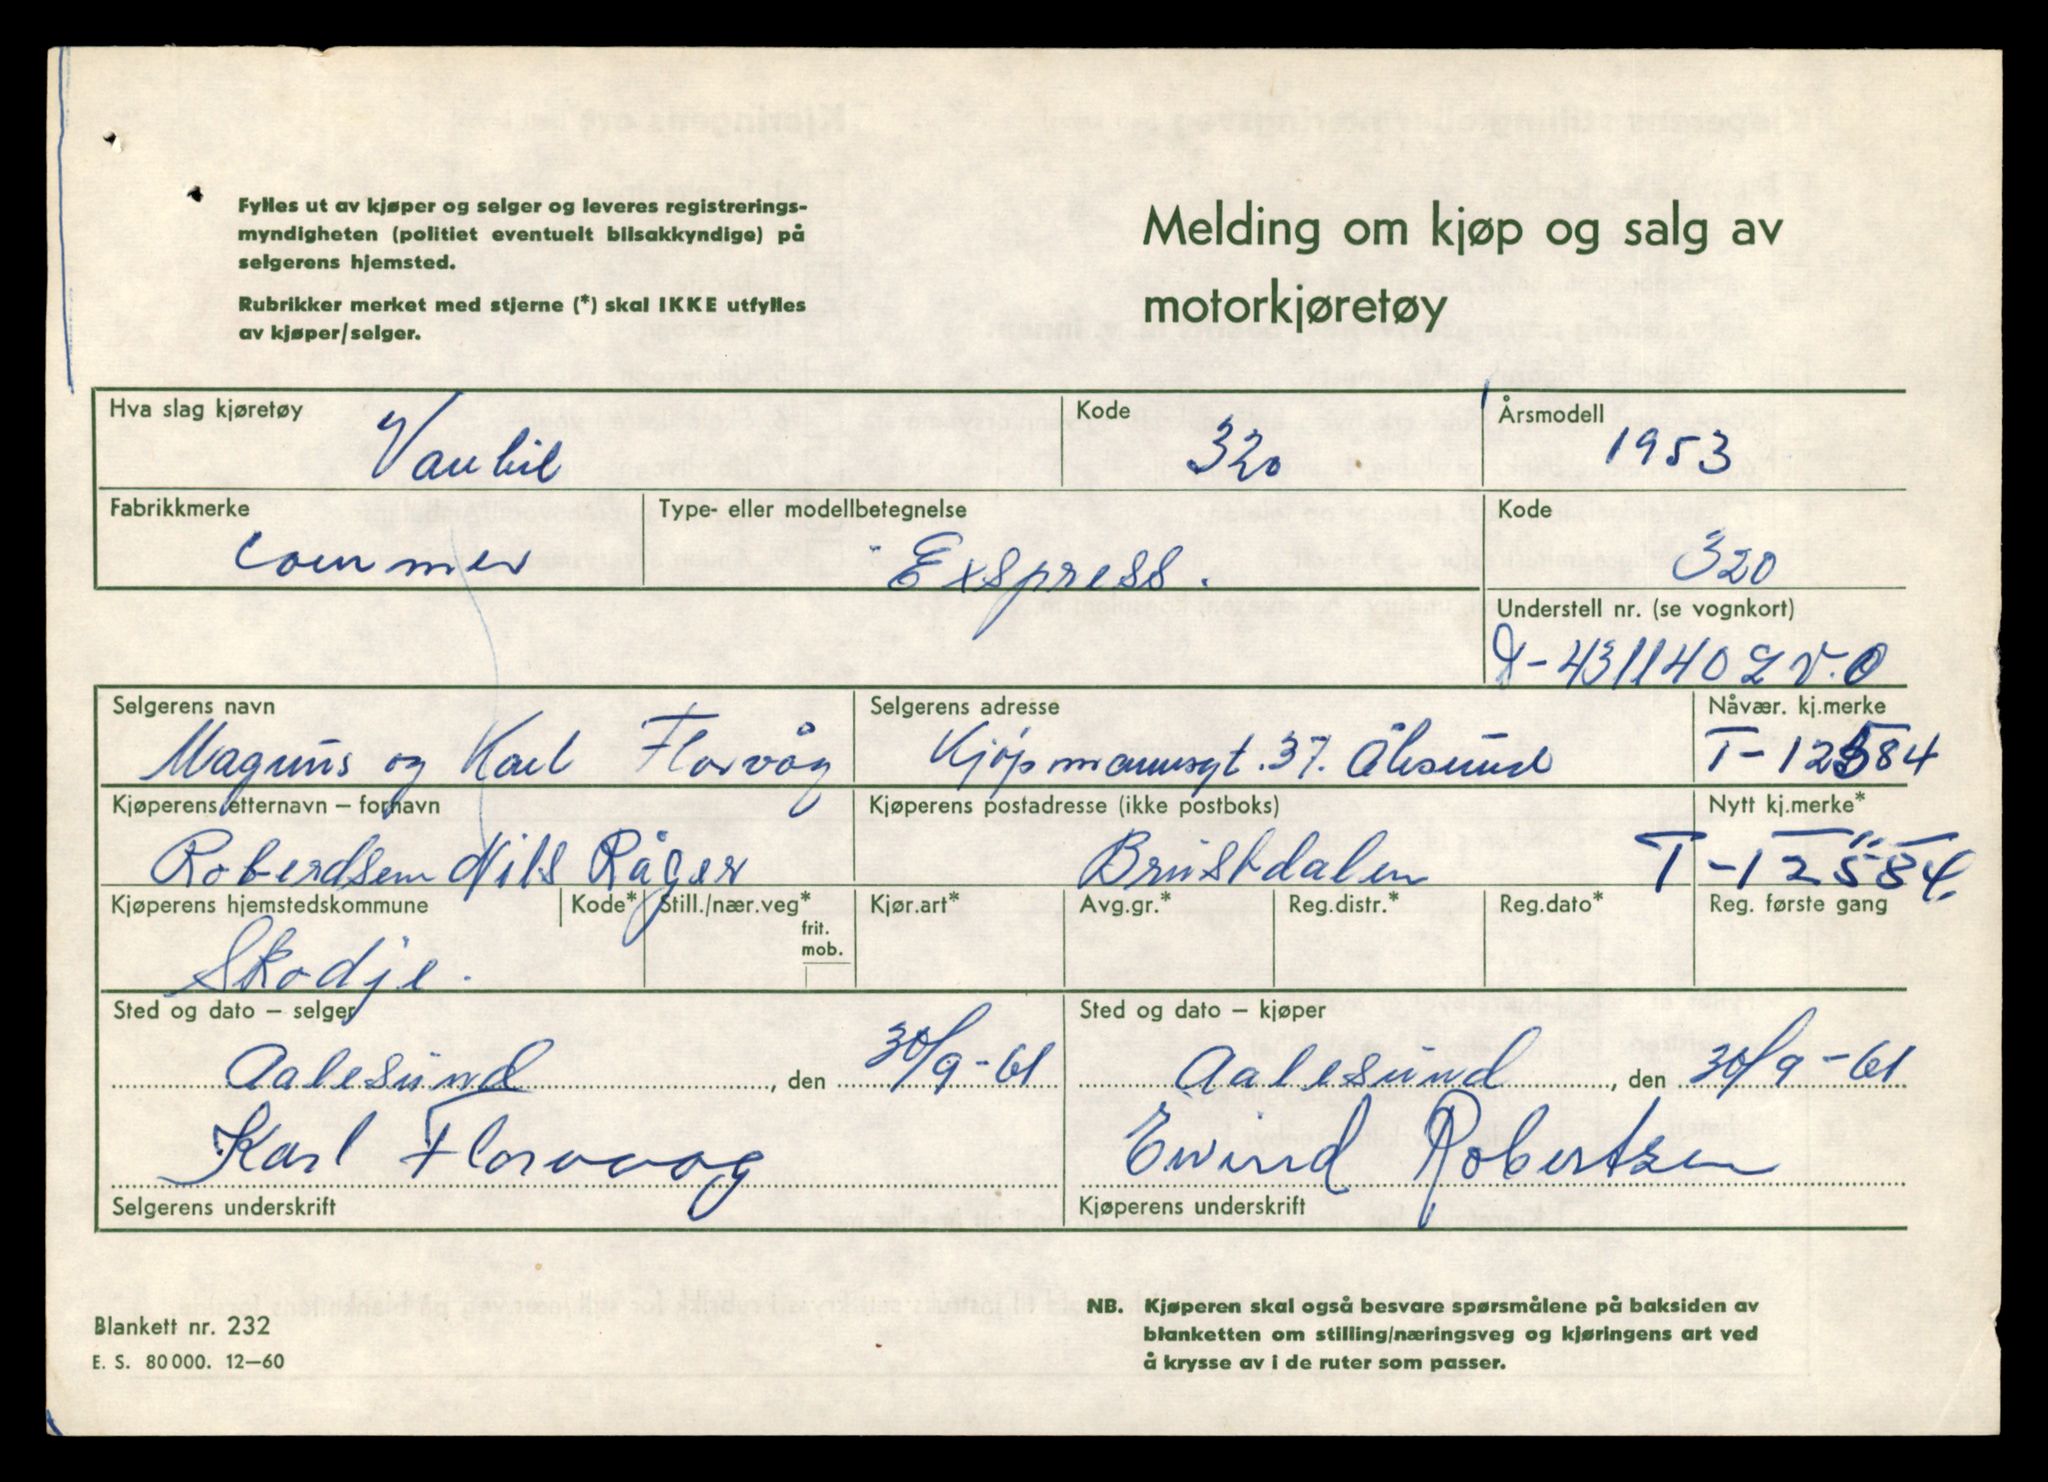 Fylles ut av kjøper og selger og leveres registrerings-
myndigheten (politiet eventuelt bilsakkyndige) på
selgerens hjemsted.
Rubrikker merket med stjerne (*) skal IKKE utfylles
av kjøper/selger.
Melding om kjøp og salg av
motorkjøretøy
Hva slag kjøretøy
Varebil
Kode
320
Årsmodell
1953
Fabrikkmerke
Commer
Type- eller modellbetegnelse
Exspress.
Kode
320
Understell nr. (se vognkort)
-4311402 V.O
Selgerens navn
Magnus og Karl Florvåg
Selgerens adresse
Kjøpmannsgt. 37. Ålesund
Nåvær. kj.merke
T-12584
Kjøperens etternavn – fornavn
Roberdsen Nils Råger
Kjøperens postadresse (ikke postboks)
Brusdalen
Nytt kj.merke*
T-12584.
Kjøperens hjemstedskommune
Skodje.
Kode*
Still./nær.veg*
frit.
mob.
Kjør.art*
Avg.gr.*
Reg.distr.*
Reg.dato*
Reg. første gang
Sted og dato – selger
Aalesund, den 30/9-61
Karl Florvaag
Selgerens underskrift
Sted og dato – kjøper
Aalesund, den 30/9-61
Ewind Robertsen
Kjøperens underskrift
Blankett nr. 232
E. S. 80 000. 12–60
NB. Kjøperen skal også besvare spørsmålene på baksiden av
blanketten om stilling/næringsveg og kjøringens art ved
å krysse av i de ruter som passer.